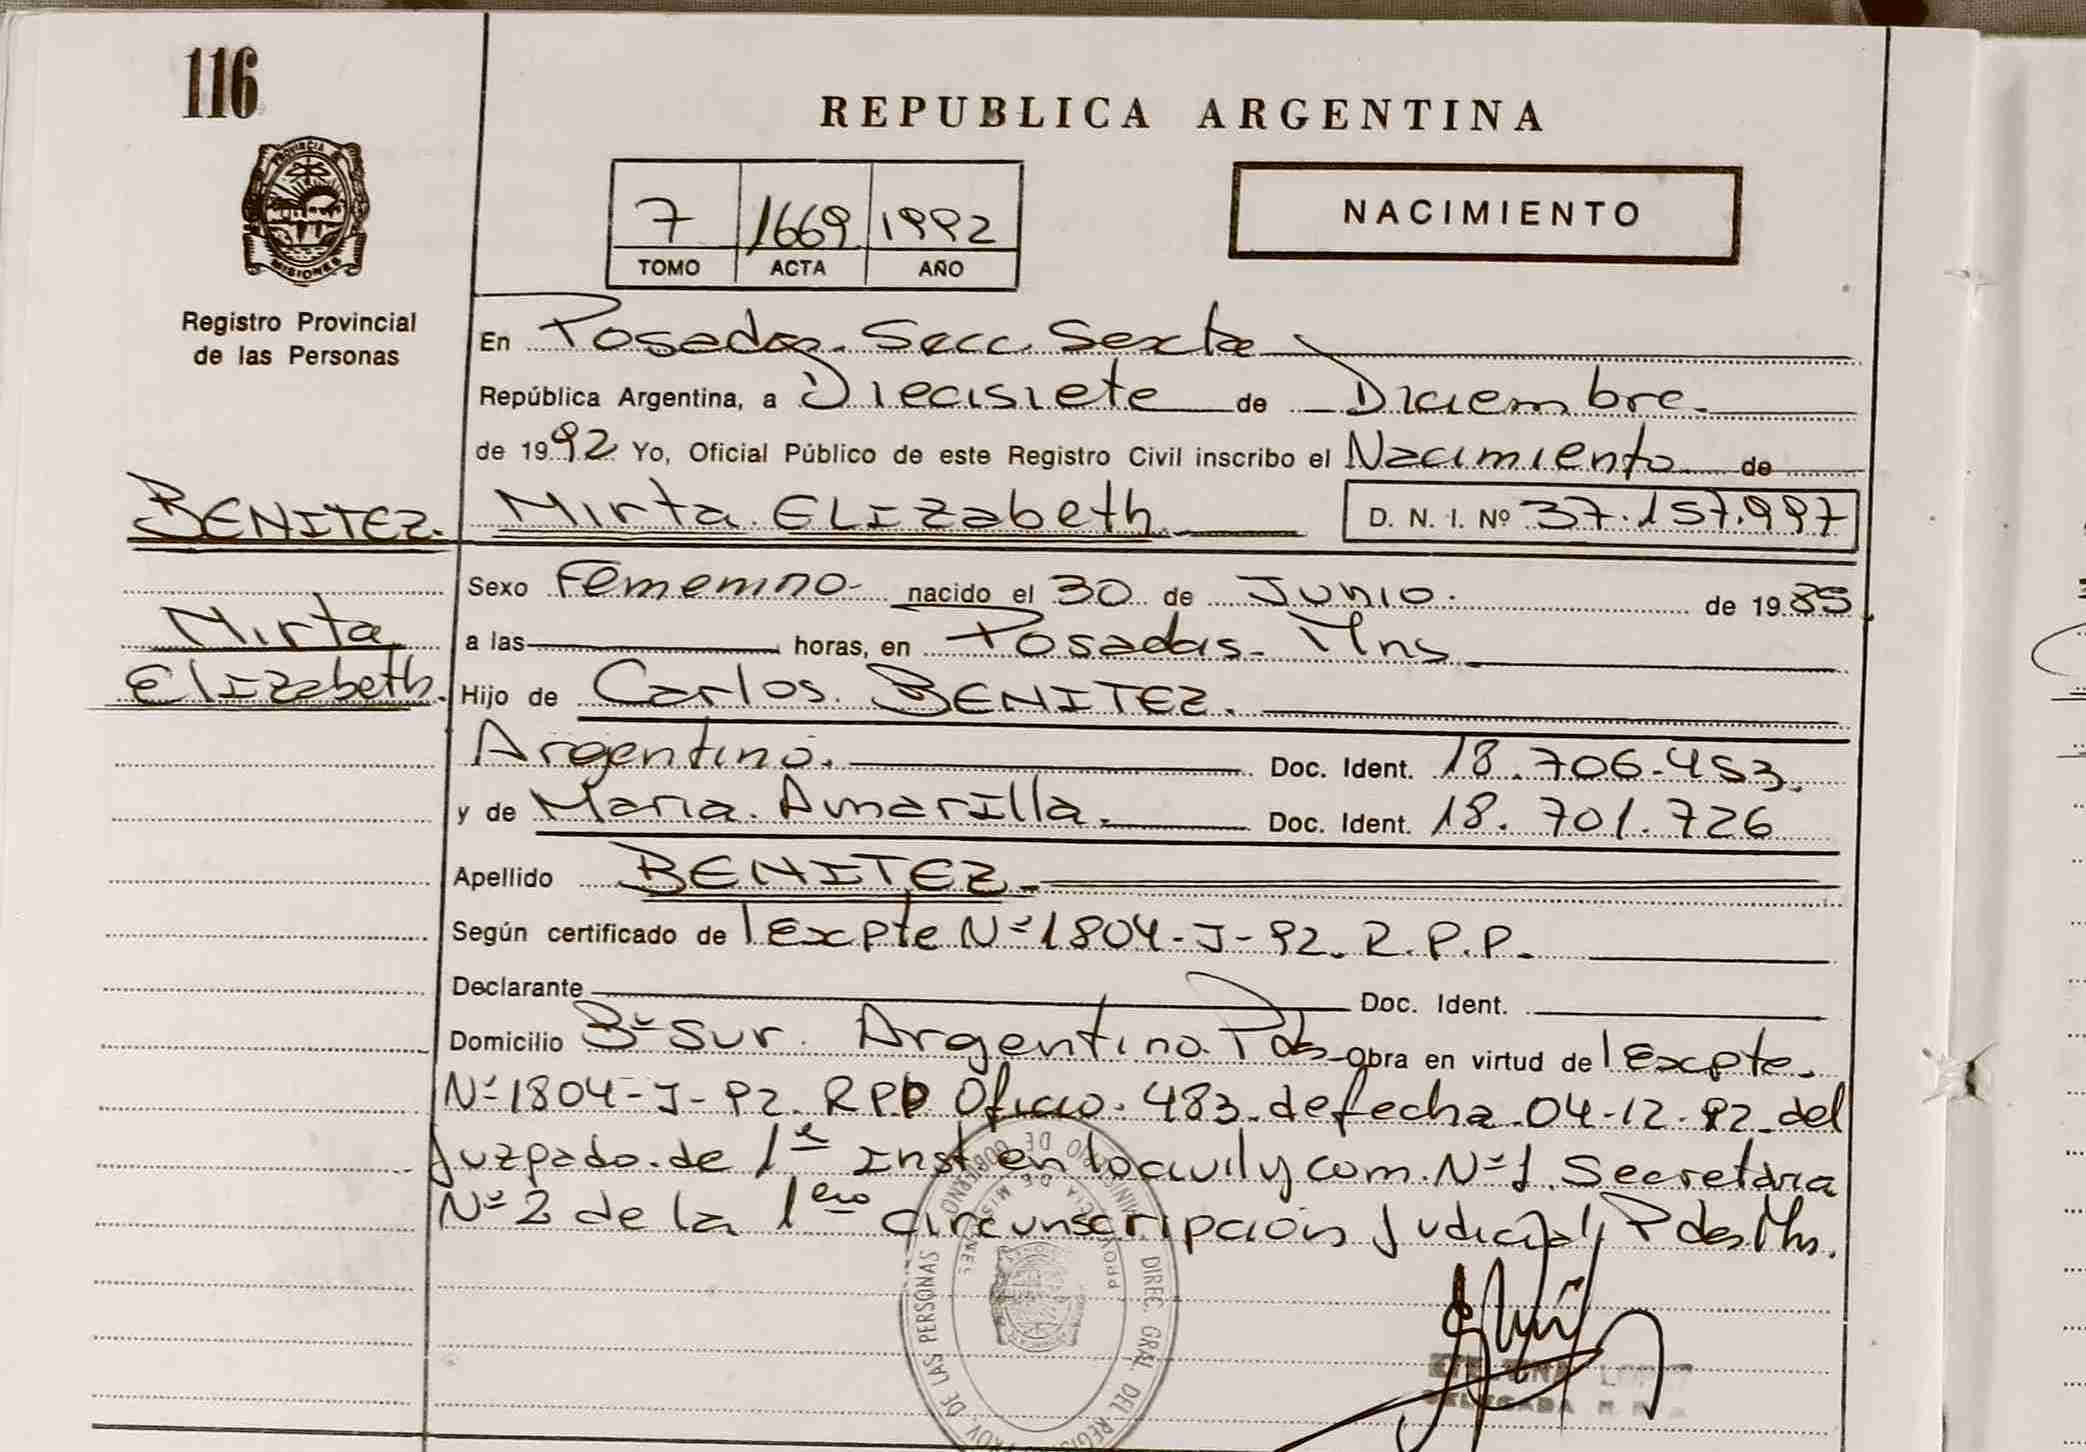 116
REPUBLICA ARGENTINA
PROVINCIA DE
MISIONES
Registro Provincial
de las Personas
7 1669 1992
TOMO ACTA AÑO
NACIMIENTO
En Posadas. Secc. Sexta
República Argentina, a Diecisiete de Diciembre.
de 1992 Yo, Oficial Público de este Registro Civil inscribo el Nacimiento de
BENITEZ. Mirta ELIZabeth. D. N. I. Nº 37.157.997
Sexo Femenino- nacido el 30 de Junio. de 1985
Mirta a las horas, en Posadas- Mns
Elizabeth. Hijo de Carlos. BENITEZ.
Argentino. Doc. Ident. 18.706.453.
y de Maria. Amarilla. Doc. Ident. 18.701.726
Apellido BENITEZ.
Según certificado de Expte Nº 1804-J-92. R.P.P.
Declarante Doc. Ident.
Domicilio Bº Sur. Argentino. Pdas Obra en virtud de Expte.
Nº 1804-J-92. RPP Oficio. 483. de fecha 04-12-92. del
Juzgado. de 1ª Inst en lo civil y com. Nº 1. Secretaria
Nº 2 de la 1era circunscripción Judicial Pdas Mns.
DIREC. GRAL. DEL REGIS PROV. DE LAS PERSONAS
MINISTERIO DE GOBIERNO
PROVINCIA DE MISIONES
LOPEZ
DELEGADA